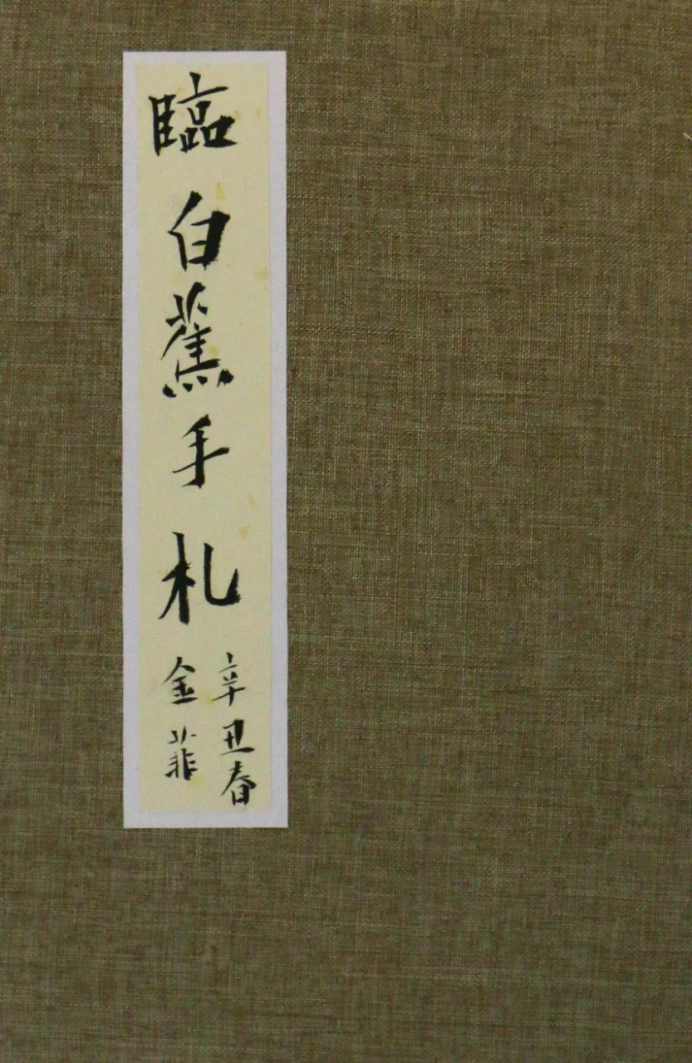 臨白蕉手札
辛丑春
金菲